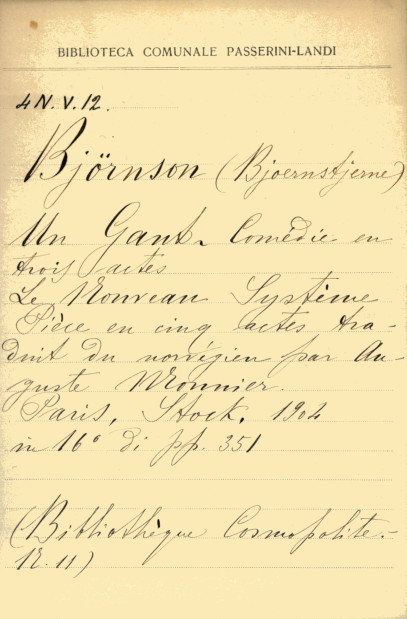 BIBLIOTECA COMUNALE PASSERINI-LANDI
4 N. V. 12.
Björnson (Bjoernstjerne)
Un Gant. Comédie en
trois actes
Le Nouveau Système
Pièce en cinq actes tra-
duit du norvégien par Au-
guste Monnier.
Paris, Stock, 1904
in 16° di pp. 351
(Bibliothèque Cosmopolite.-
N. 11)